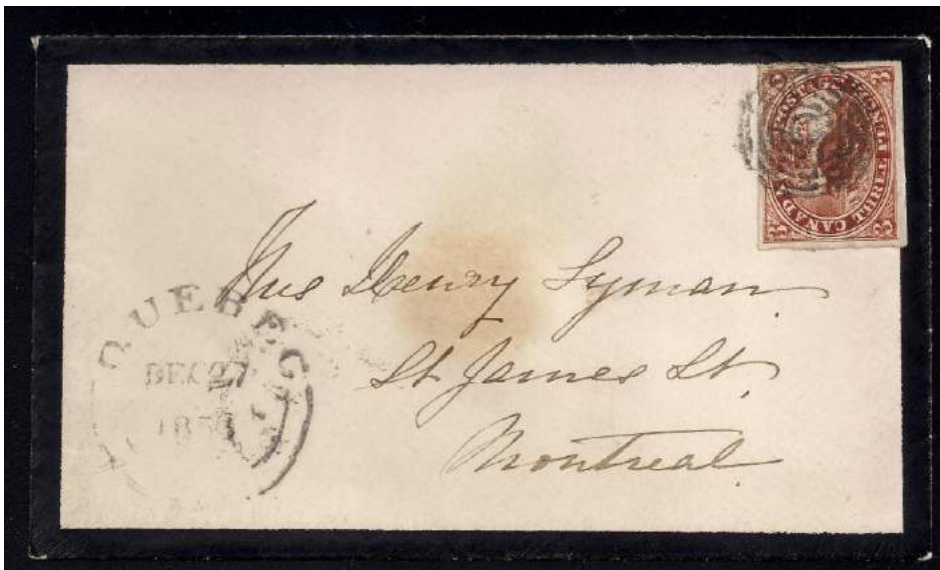 3 3
CANADA POSTAGE
THREE PENCE
3 3
Mrs Henry Lyman
St James St.
Montreal
QUEBEC
DEC 27